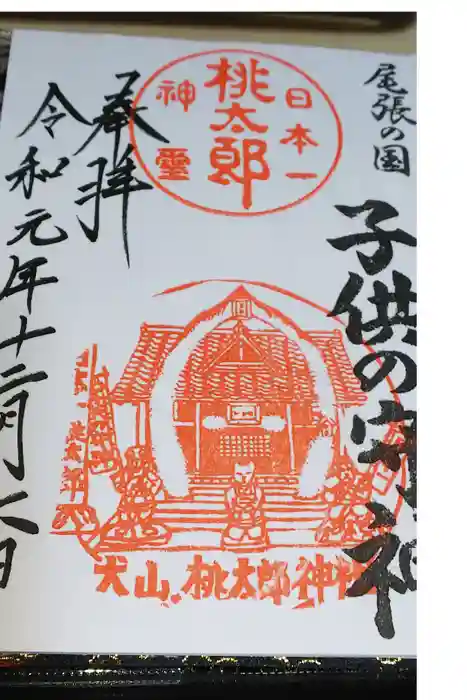 尾張の国
子供の守神
日本一
桃太郎
神霊
奉拝
令和元年十二月八日
日本一桃太郎
犬山桃太郎神社